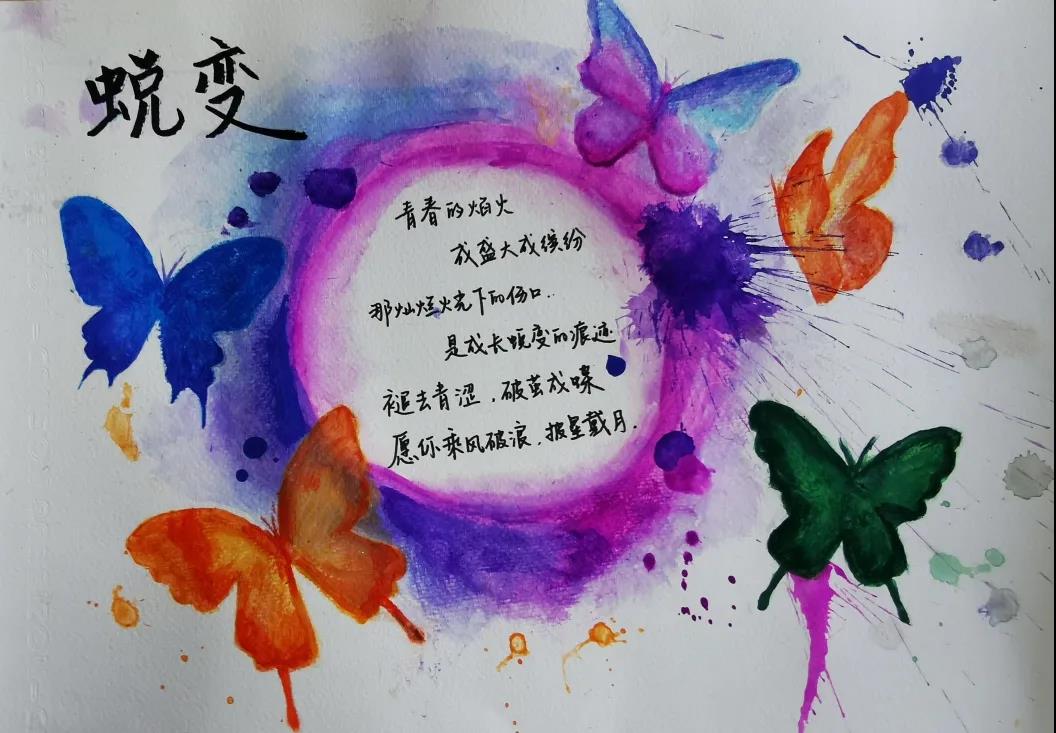 蜕变
青春的焰火
成盛大成缤纷
那灿烂烧下的伤口..
是成长蜕变的痕迹
褪去青涩，破茧成蝶
愿你乘风破浪，披星戴月.